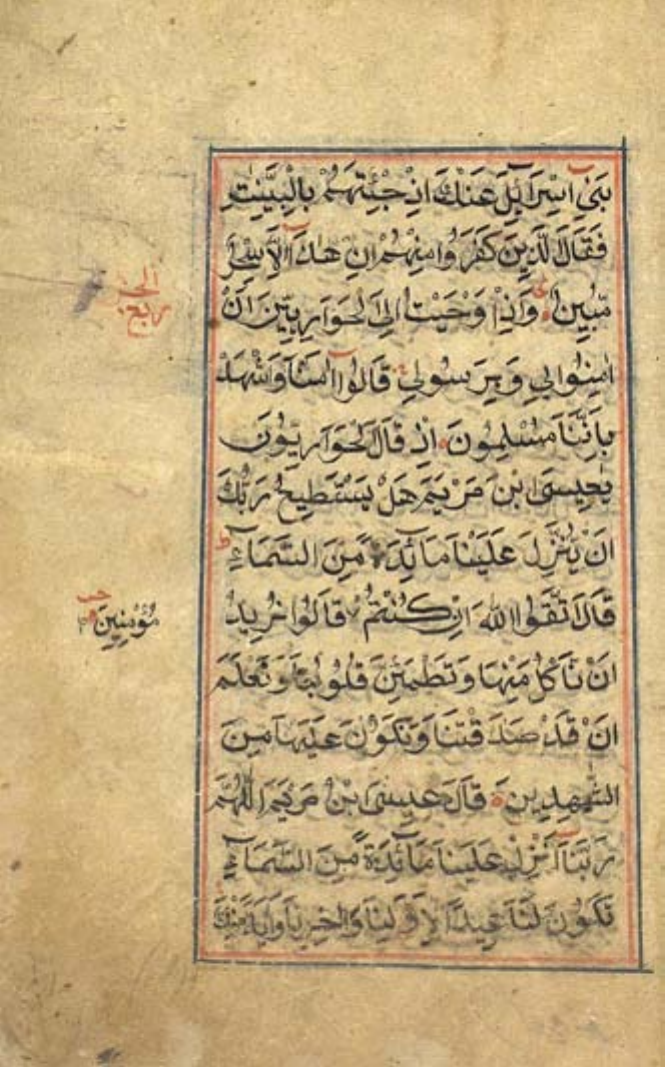 بَنِي اِسْرَآئِلَ عَنْكَ اِذْ جِئْتَهُمْ بِالْبَيِّنٰتِ
فَقَالَ الَّذِينَ كَفَرُوا مِنْهُمْ اِنْ هٰذَا اِلَّا سِحْرٌ
مُّبِينٌ وَاِذْ اَوْحَيْتُ اِلَى الْحَوَارِيّٖنَ اَنْ
اٰمِنُوا بِي وَبِرَسُولِي قَالُوا اٰمَنَّا وَاشْهَدْ
بِاَنَّنَا مُسْلِمُونَ اِذْ قَالَ الْحَوَارِيُّونَ
يٰعِيسَى ابْنَ مَرْيَمَ هَلْ يَسْتَطِيعُ رَبُّكَ
اَنْ يُنَزِّلَ عَلَيْنَا مَآئِدَةً مِّنَ السَّمَآءِ
قَالَ اتَّقُوا اللّٰهَ اِنْ كُنْتُمْ قَالُوا نُرِيدُ
اَنْ نَاْكُلَ مِنْهَا وَتَطْمَئِنَّ قُلُوبُنَا وَنَعْلَمَ
اَنْ قَدْ صَدَقْتَنَا وَنَكُونَ عَلَيْهَا مِنَ
الشّٰهِدِينَ قَالَ عِيسَى ابْنُ مَرْيَمَ اللّٰهُمَّ
رَبَّنَا اَنْزِلْ عَلَيْنَا مَآئِدَةً مِّنَ السَّمَآءِ
تَكُونُ لَنَا عِيدًا لِاَوَّلِنَا وَاٰخِرِنَا وَاٰيَةً مِّنْكَ
ربع
مُؤْمِنِينَ